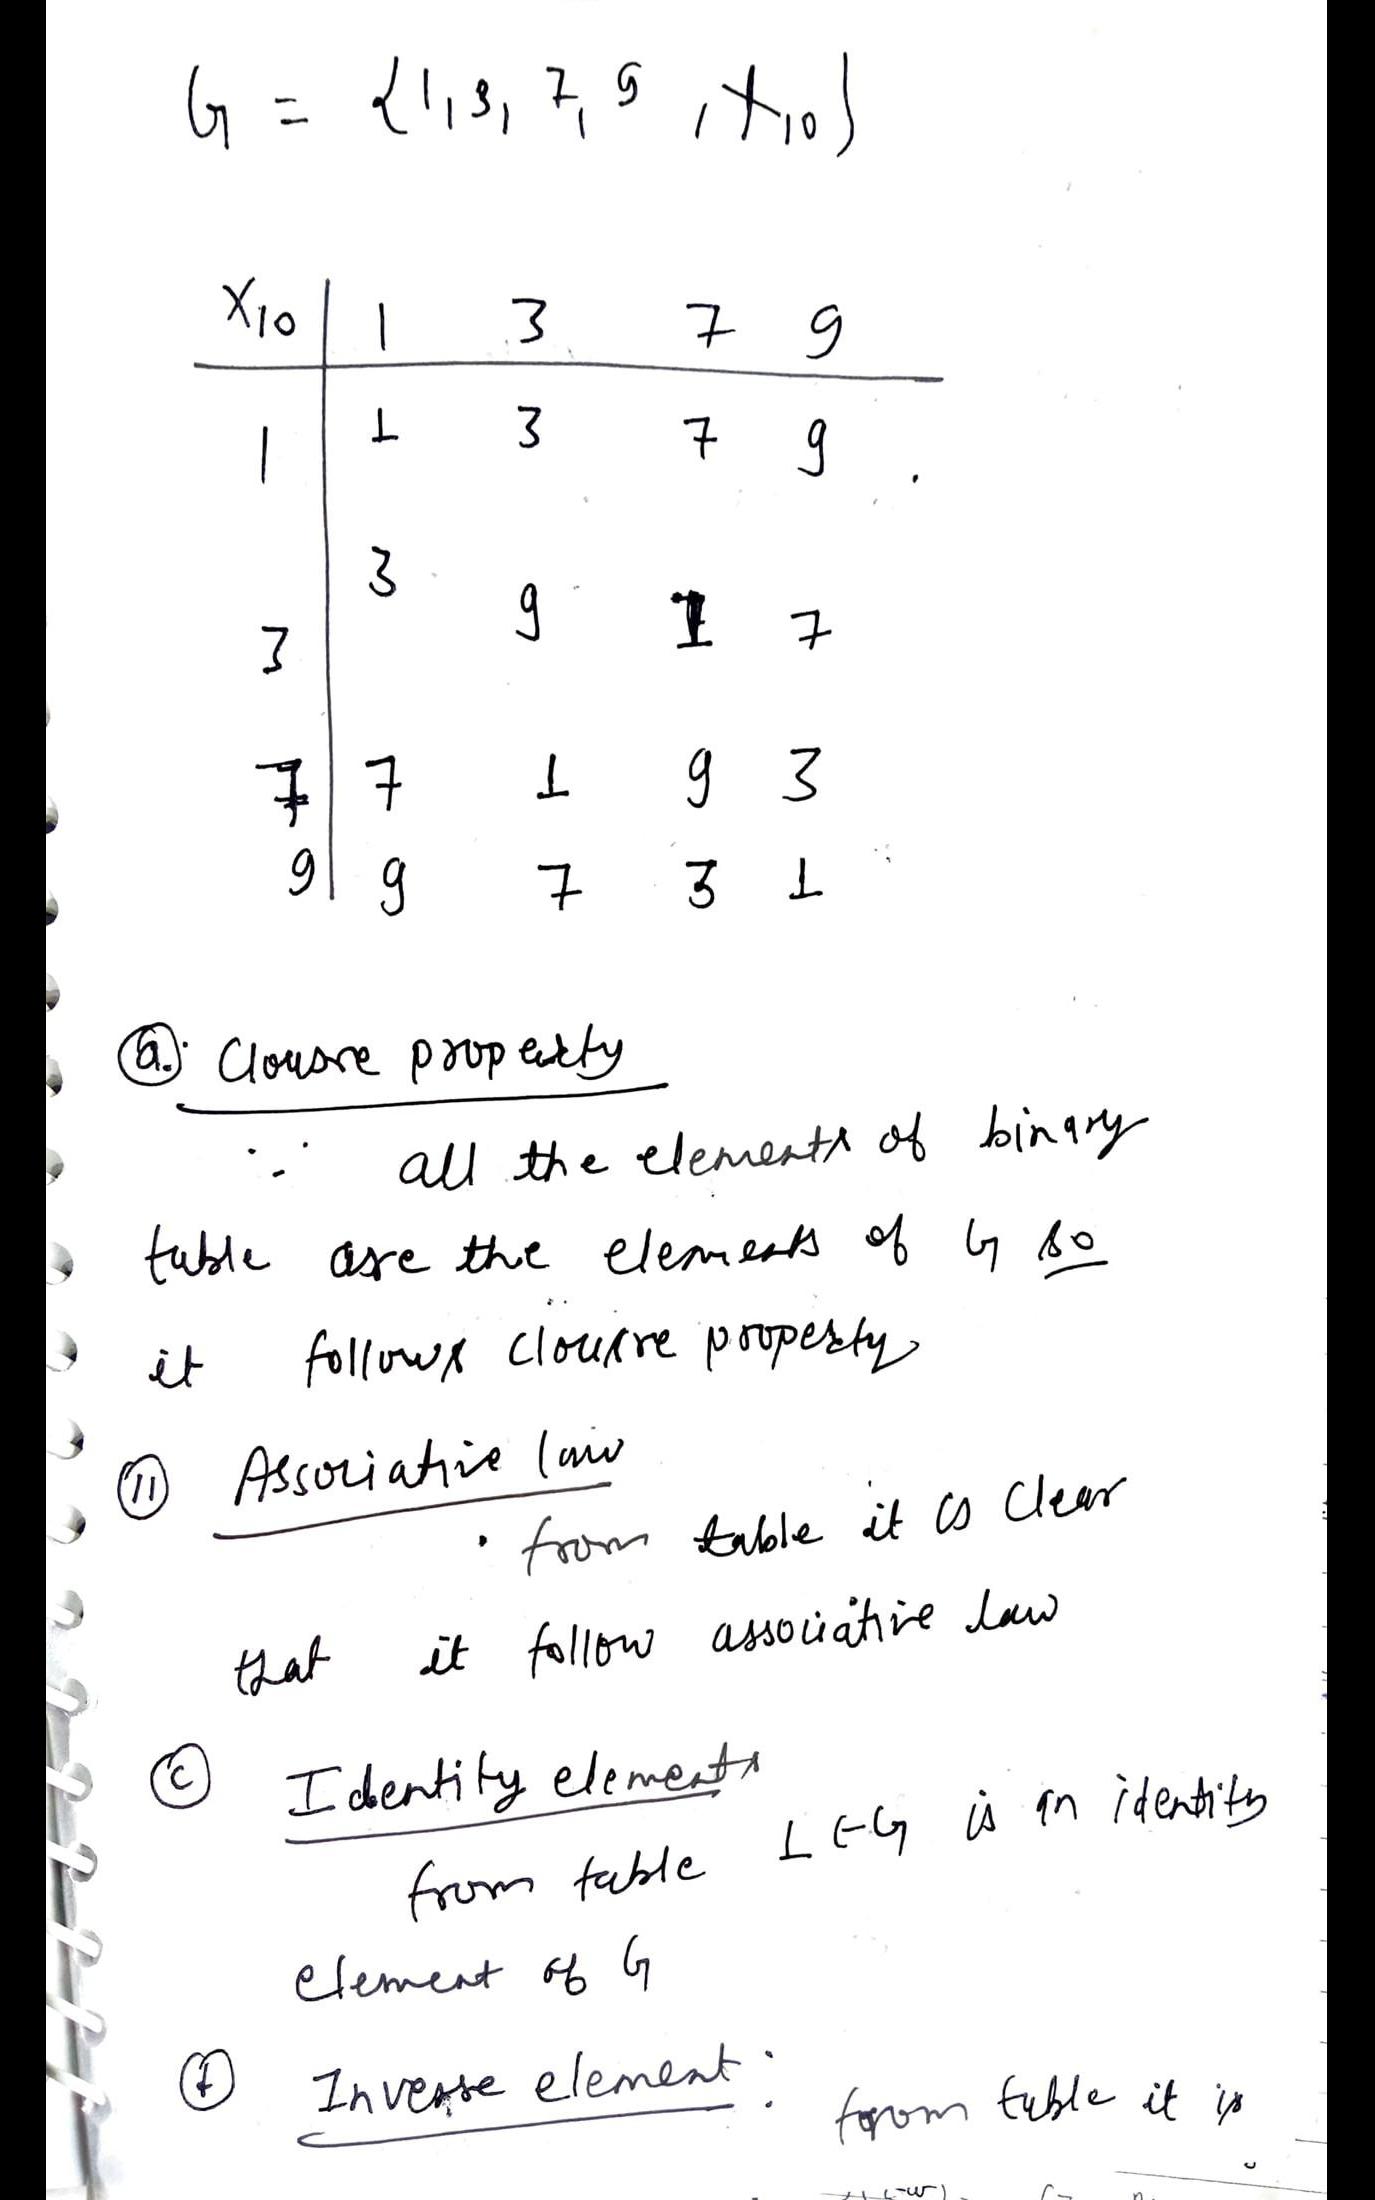 G = {1, 3, 7, 9, X10}
X10 | 1 3 7 9
1 | 1 3 7 9
3 | 3 9 1 7
7 | 7 1 9 3
9 | 9 7 3 1
(a). Clousre property
∵ all the elements of binary
table are the elements of G so
it follows clousre property
(11) Associative law
from table it is clear
that it follow associative law
(c) Identity elements
from table 1 ∈ G is an identity
element of G
Inverse element :
from table it is